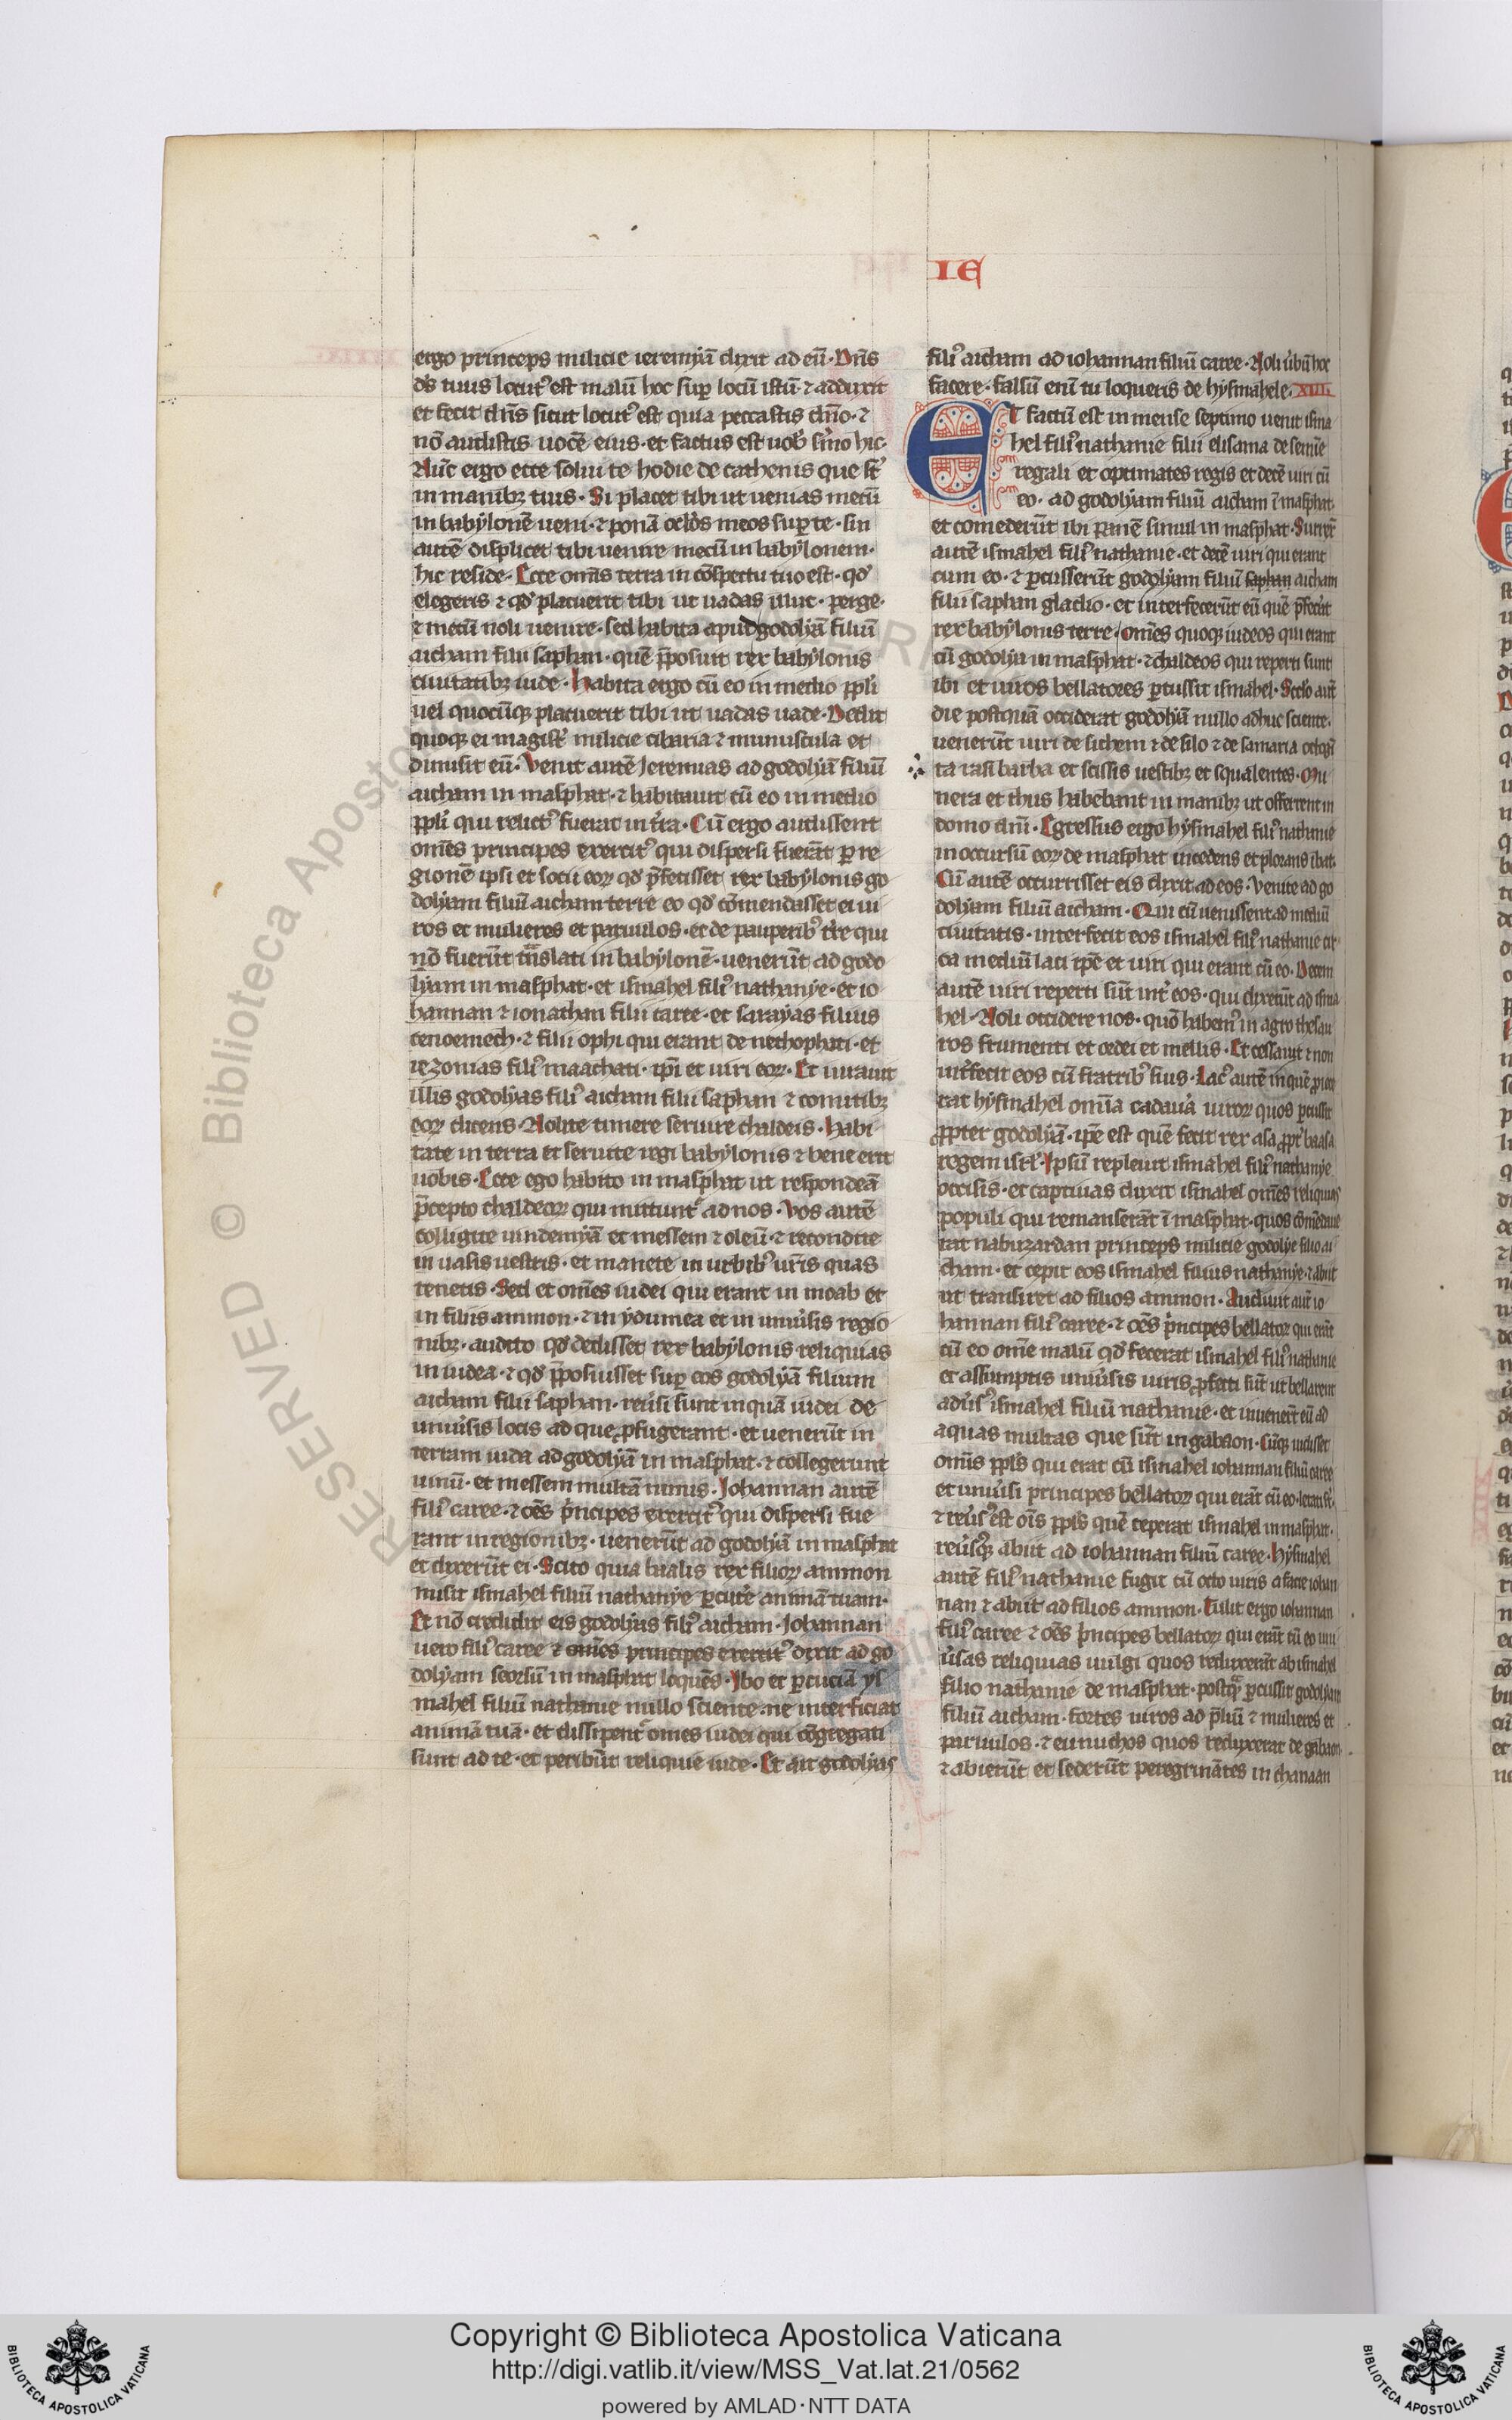 IE
ergo princeps milicie ieremyā dixit ad eū· Dn̄s
ds̄ tuus locut᾽ est malū hoc sup̄ locū istū· ⁊ adduxit
et fecit dn̄s sicut locut᾽ est quia peccastis dn̄o· ⁊
nō audistis uocē eius· et factus est uob᾽ s̄mo hic·
Nūc ergo ecce solui te hodie de cathenis que st̄
in manibꝫ tuis· Si placet tibi ut uenias mecū
in babylonē ueni· ⁊ ponā oclōs meos sup̄ te· sin
autē displicet tibi uenire mecū in babylonem·
hic reside· Ecce om̄is terra in cōspectu tuo est· qd̄
elegeris ⁊ qd̄ placuerit tibi ut uadas illuc· perge·
⁊ mecū noli uenire· sed habita apud godolyā filiū
aicham filii saphan· quē p̄posuit rex babylonis
ciuitatibꝫ iude· Habita ergo cū eo in medio pp̄li
uel quocūqꝫ placuerit tibi ut uadas uade· Dedit
quoqꝫ ei magist᾽ milicie cibaria ⁊ munuscula et
dimisit eū· Venit autē Jeremias ad godolyā filiū
aicham in masphat· ⁊ habitauit cū eo in medio
pp̄li qui relict᾽ fuerat in t̄ra· Cū ergo audissent
om̄es principes exercit᾽ qui dispersi fuerāt ꝑ re
gionē ipsi et socii eoꝝ qd̄ p̄fecisset rex babylonis go
dolyam filiū aicham terre eo qd̄ cōmendasset ei ui
ros et mulieres et paruulos· et de pauperib᾽ t̄re qui
nō fuerūt trāslati in babylonē· uenerūt ad godo
lyam in masphat· et ismahel fili᾽ nathanye· et io
hannan ⁊ ionathan filii caree· et sarayas filius
cenoemech· ⁊ filii ophi qui erant de nethophati· et
iezonias fili᾽ maachati· ip̄i et uiri eoꝝ· Et iurauit
illis godolyas fili᾽ aicham filii saphan ⁊ comitibꝫ
eoꝝ dicens· Nolite timere seruire chaldeis· Habi
tate in terra et seruite regi babylonis ⁊ bene erit
uobis· Ecce ego habito in masphat ut respondeā
p̄cepto chaldeoꝝ qui mittunt᾽ ad nos· Vos autē
colligite uindemyā et messem ⁊ oleū· ⁊ recondite
in uasis uestris· et manete in urbib᾽ ur̄is quas
tenetis· Sed et om̄es iudei qui erant in moab et
in filiis ammon· ⁊ in ydumea et in uniu᾽sis regio
nibꝫ· audito qd̄ dedisset rex babylonis reliquias
in iudea· ⁊ qd̄ p̄posuisset sup̄ eos godolyā filium
aicham filii saphan· reu᾽si sunt inquā iudei de
uniu᾽sis locis ad que ꝓfugerant· et uenerūt in
terram iuda ad godolyā in masphat· ⁊ collegerunt
uinū· et messem multā nimis· Johannan autē
fili᾽ caree· ⁊ oēs p̄ncipes exercit᾽ qui dispersi fue
rant in regionibꝫ· uenerūt ad godolyā in masphat
et dixerūt ei· Scito quia bualis rex filioꝝ ammon
misit ismahel filiū nathanye ꝑcut᾽e animā tuam·
Et nō credidit eis godolyas fili᾽ aicham· Johannan
uero fili᾽ caree ⁊ om̄es principes exercit᾽ dixit ad go
dolyam seorsū in masphat loquēs· Jbo et ꝑcuciā ys
mahel filiū nathanie nullo sciente· ne interficiat
animā tuā· et dissipent᾽ omēs iudei qui cōgregati
sunt ad te· et peribūt reliquie iude· Et ait godolyas
fili᾽ aicham ad iohannan filiū caree· Noli ūbū hoc
facere· falsū enī tu loqueris de hysmahele· XLI
ET factū est in mense septimo uenit isma
hel fili᾽ nathanie filii elisama de semīe
regali et optimates regis et decē uiri cū
eo· ad godolyam filiū aicham ī masphat·
et comederūt ibi panē simul in masphat· Surrex᾽
autē ismahel fili᾽ nathanie· et decē uiri qui erant
cum eo· ⁊ ꝑcusserūt godolyam filiū saphan aicham
filii saphan gladio· et interfecerūt eū quē p̄fec᾽at
rex babylonis terre· om̄es quoqꝫ iudeos qui erant
cū godolya in masphat· ⁊ chaldeos qui reperti sunt
ibi et uiros bellatores ꝑcussit ismahel· Secdo aut̄
die postquā occiderat godolyā nullo adhuc sciente·
uenerūt uiri de sichem ⁊ de silo ⁊ de samaria octogī
ta rasi barba et scissis uestibꝫ et squalentes· Mu
nera et thus habebant in manibꝫ ut offerrent in
domo dn̄i· Egressus ergo hysmahel fili᾽ nathanie
in occursū eoꝝ de masphat incedens et plorans ibat·
Cū autē occurrisset eis dixit ad eos· Venite ad go
dolyam filiū aicham· Qui cū uenissent ad mediū
ciuitatis· interfecit eos ismahel fili᾽ nathanie cir
ca mediū laci ip̄e et uiri qui erant cū eo· Decem
autē uiri reperti sūt int᾽ eos· qui dixerūt ad isma
hel· Noli occidere nos· quō habem᾽ in agro thesau
ros frumenti et ordei et mellis· Et cessauit ⁊ non
int᾽fecit eos cū fratrib᾽ suis· Lac᾽ autē in quē ꝓiece
rat hysmahel om̄ia cadau᾽a uiroꝝ quos ꝑcussit
ꝓpter godolyā· ip̄e est quē fecit rex asa ꝓpt᾽ baasa
regem isrl̄· Ipsū repleuit ismahel fili᾽ nathanye
occisis· et captiuas duxit ismahel om̄es reliquias
populi qui remanserāt ī masphat· quos cōmēdaue
rat nabuzardan princeps milicie godolye filio ai
cham· et cepit eos ismahel filius nathanye· ⁊ abiit
ut transiret ad filios ammon· Audiuit aut̄ io
hannan fili᾽ caree· ⁊ oēs p̄ncipes bellatoꝝ qui erāt
cū eo om̄e malū qd̄ fecerat ismahel fili᾽ nathanie
et assumptis uniu᾽sis uiris ꝓfecti sūt ut bellarent
adu᾽s᾽ ismahel filiū nathanie· et inuenert̄ eū ad
aquas multas que sūt in gabaon· Cūqꝫ uidisset
om̄is pp̄ls qui erat cū ismahel iohannan filiū caree
et uniu᾽si principes bellatoꝝ qui erāt cū eo· letati st̄·
⁊ reu᾽s᾽ est ois̄ pp̄ls quē ceperat ismahel in masphat·
reu᾽susqꝫ abiit ad iohannan filiū caree· Hysmahel
autē fili᾽ nathanie fugit cū octo uiris a facie iohan
nan ⁊ abiit ad filios ammon· Tulit ergo iohannan
fili᾽ caree ⁊ oēs p̄ncipes bellatoꝝ qui erāt cū eo uni
u᾽sas reliquias uulgi quos reduxerāt ab ismahel
filio nathanie de masphat· postq̄ ꝑcussit godolyam
filiū aicham· fortes uiros ad p̄liū ⁊ mulieres et
paruulos· ⁊ eunuchos quos reduxerat de gabaon·
⁊ abierūt et sederūt peregrinātes in chanaan
RESERVED © Biblioteca Apostolica
Copyright © Biblioteca Apostolica Vaticana
http://digi.vatlib.it/view/MSS_Vat.lat.21/0562
powered by AMLAD·NTT DATA
BIBLIOTECA APOSTOLICA VATICANA
BIBLIOTECA APOSTOLICA VATICANA